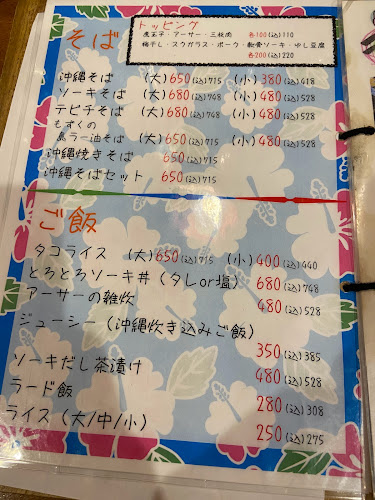 そば
トッピング
煮玉子・アーサー・三枚肉 各100(込)110
梅干し・スクガラス・ポーク・軟骨ソーキ・ゆし豆腐
各200(込)220
沖縄そば (大)650(込)715 (小)380(込)418
ソーキそば (大)680(込)748 (小)480(込)528
テビチそば (大)680(込)748 (小)480(込)528
もずくの
黒ラー油そば (大)650(込)715 (小)480(込)528
沖縄焼きそば 650(込)715
沖縄そばセット 650(込)715
ご飯
タコライス (大)650(込)715 (小)400(込)440
とろとろソーキ丼(タレor塩) 680(込)748
アーサーの雑炊 480(込)528
ジューシー(沖縄炊き込みご飯)
350(込)385
ソーキだし茶漬け 480(込)528
ラード飯 280(込)308
ライス(大/中/小) 250(込)275